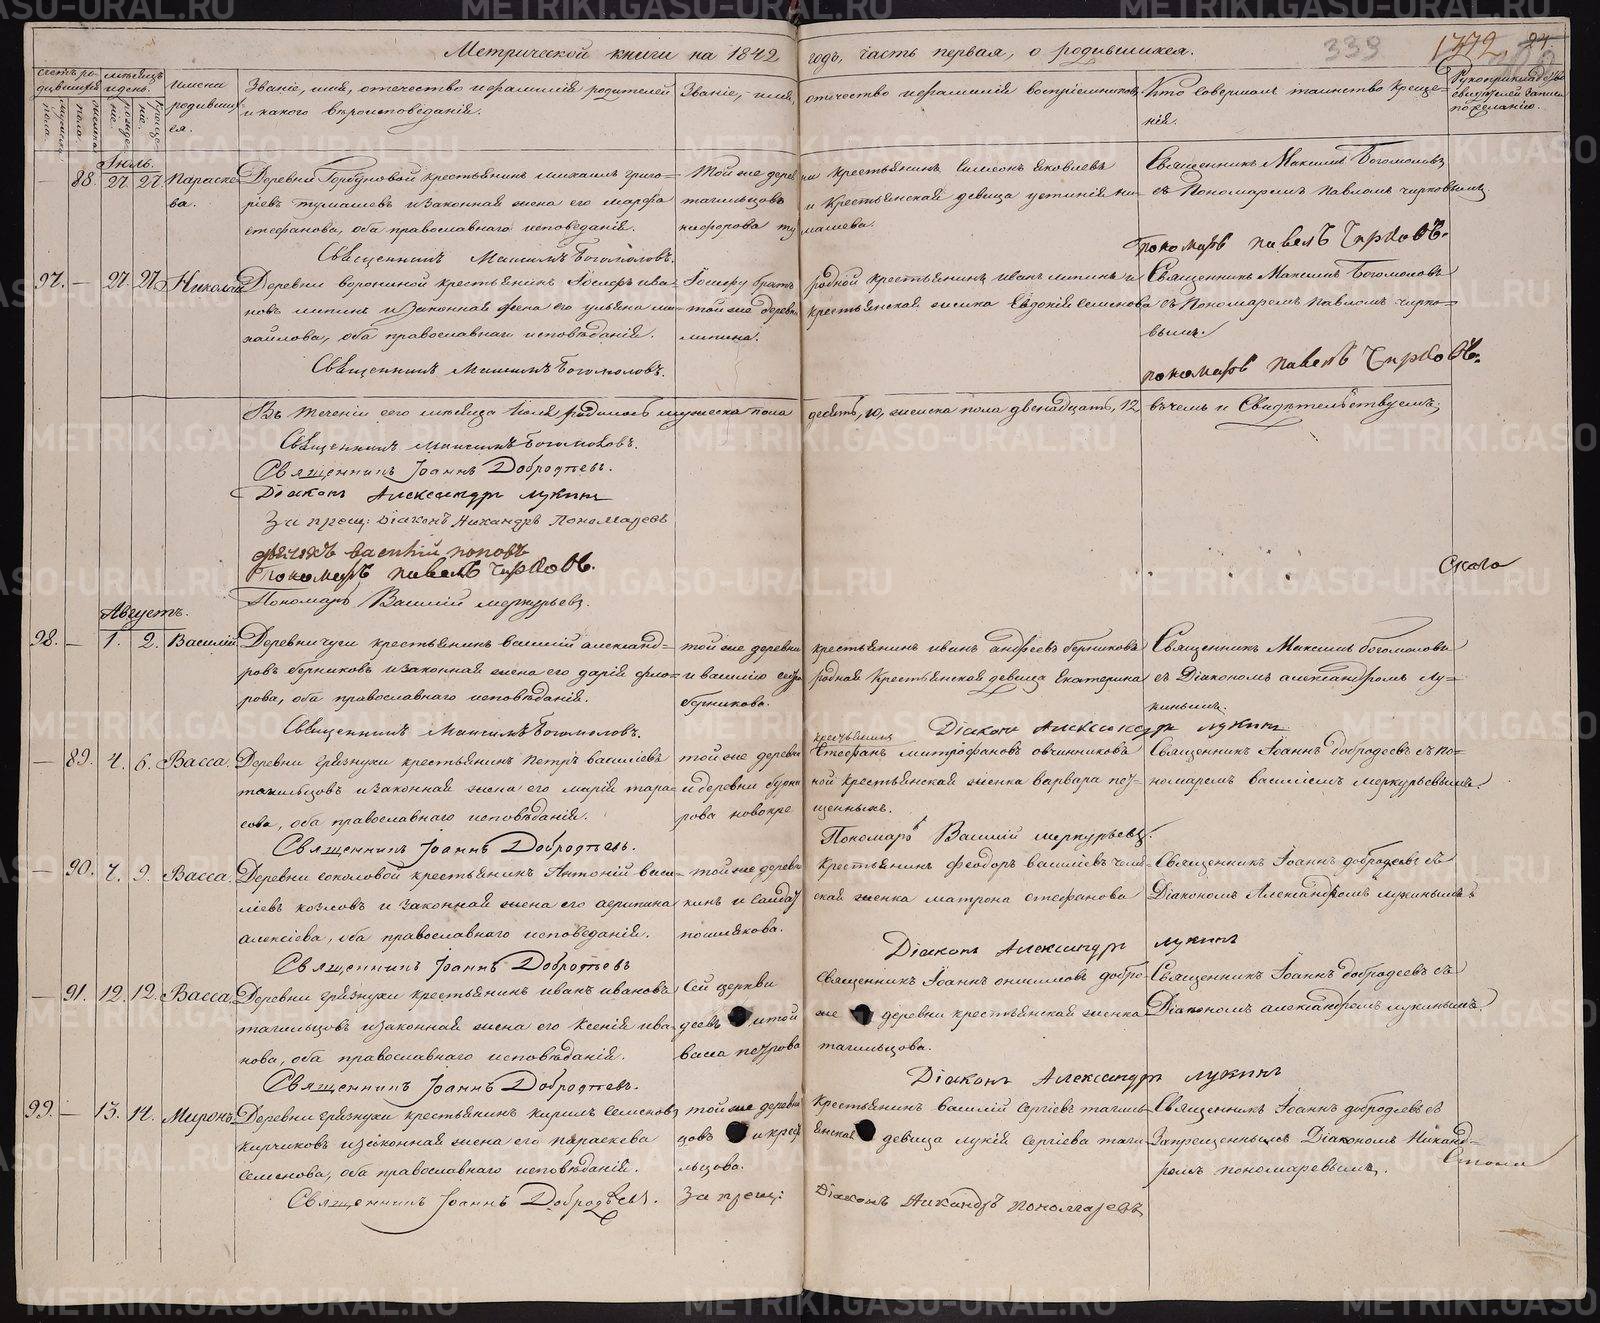 Метрической книги на 1842 годъ, часть первая, о родившихся.
339
1772
Счетъ родившихся
мѣсяцъ и день.
Имена родившихся.
Званіе, имя, отечество и фамилія родителей и какого вѣроисповеданія.
Званіе, имя, отечество и фамилія воспріемниковъ
Кто совершалъ таинство крещенія.
Рукоприкладство свидѣтелей записи по желанію.
Іюль.
— 88. 27. 27. Параскева.
Деревни Горбуновой крестьянинъ михаилъ григо-
ріевъ тумашевъ и законная жена его марфа
стефанова, оба православнаго исповеданія.
Священникъ Максимъ Богомоловъ.
Той же деревни крестьянинъ Симеонъ Яковлевъ
тагильцовъ и крестьянская девица устинія ни-
кифорова тумашева.
Священникъ Максимъ Богомоловъ
съ Пономаремъ Павломъ чирковымъ.
пономарь павелъ Чирковъ.
97. — 27. 27. Николай
Деревни ворониной крестьянинъ Іосифъ ива-
новъ липинъ и законная жена его ульяна ми-
хайлова, оба православнаго исповѣданія.
Священникъ Максимъ Богомоловъ.
Іосифу братъ родной крестьянинъ иванъ липинъ и
той же деревни крестьянская женка Евдокія Семенова
липина.
Священникъ Максимъ Богомоловъ
съ Пономаремъ Павломъ чирко-
вымъ.
пономарь павелъ Чирковъ.
Въ теченіи сего мѣсяца Іюля родилось мужеска пола десять, 10, женска пола двенадцать, 12, въ чемъ и Свидѣтельствуемъ;
Священникъ Максимъ Богомоловъ.
Священникъ Іоаннъ Добродѣевъ.
Діаконъ Александръ лукинъ
Запрещ: Діаконъ Никандръ Пономаревъ
дьячекъ василій поповъ
Пономарь павелъ чирковъ.
Пономарь Василій меркурьевъ.
Скаго
Августъ.
98. — 1. 2. Василій
Деревни чуги крестьянинъ василій александ-
ровъ берниковъ и законная жена его дарія фио-
рова, оба православнаго исповѣданія.
Священникъ Максимъ Богомоловъ.
той же деревни крестьянинъ иванъ андреевъ берниковъ
и василію сестра родная крестьянская девица Екатерина
берникова.
Священникъ Максимъ богомоловъ
съ Діакономъ александромъ лу-
кинымъ.
Діаконъ Александръ лукинъ
— 89. 4. 6. Васса.
Деревни грязнухи крестьянинъ петръ василіевъ
тагильцовъ и законная жена его марія тара-
сова, оба православнаго исповѣданія.
Священникъ Іоаннъ Добродѣевъ.
той же деревни крестьянинъ Стефанъ митрофановъ овчинниковъ
и деревни ной крестьянская женка варвара пет-
рова новокрещенныхъ.
Священникъ Іоаннъ добродеевъ съ по-
номаремъ василіемъ меркурьевымъ.
Пономарь Василій меркурьевъ.
— 90. 7. 9. Васса.
Деревни соколовой крестьянинъ Антоній васи-
ліевъ козловъ и законная жена его агрипина
алексіева, оба православнаго исповеданія.
Священникъ Іоаннъ Добродѣевъ
той же деревни крестьянинъ феодоръ василіевъ
кинъ и ская женка матрона стефанова
пошлякова.
Священникъ Іоаннъ добродеевъ съ
Діакономъ Александромъ лукинымъ
Діаконъ Александръ лукинъ
— 91. 12. 12. Васса.
Деревни грязнухи крестьянинъ иванъ ивановъ
тагильцовъ и законная жена его Ксенія ива-
нова, оба православнаго исповѣданія.
Священникъ Іоаннъ Добродѣевъ.
Сей церкви священникъ Іоаннъ онисимовъ добро-
деевъ и той же деревни крестьянская женка
васса петрова тагильцова.
Священникъ Іоаннъ добродеевъ съ
Діакономъ александромъ лукинымъ.
Діаконъ Александръ лукинъ
99. — 13. 14. Миронъ
Деревни грязнухи крестьянинъ кирилъ семеновъ
кирчиковъ и законная жена его параскева
семенова, оба православнаго исповѣданія.
Священникъ Іоаннъ Добродѣевъ.
той же деревни крестьянинъ василій сергіевъ тагиль-
цовъ и крестьянская девица лукія сергіева таги-
льцова.
Священникъ Іоаннъ добродеевъ съ
Запрещеннымъ Діакономъ Никанд-
ромъ пономаревымъ.
Запрещ: Діаконъ Никандръ пономаревъ
METRIKI.GASO-URAL.RU